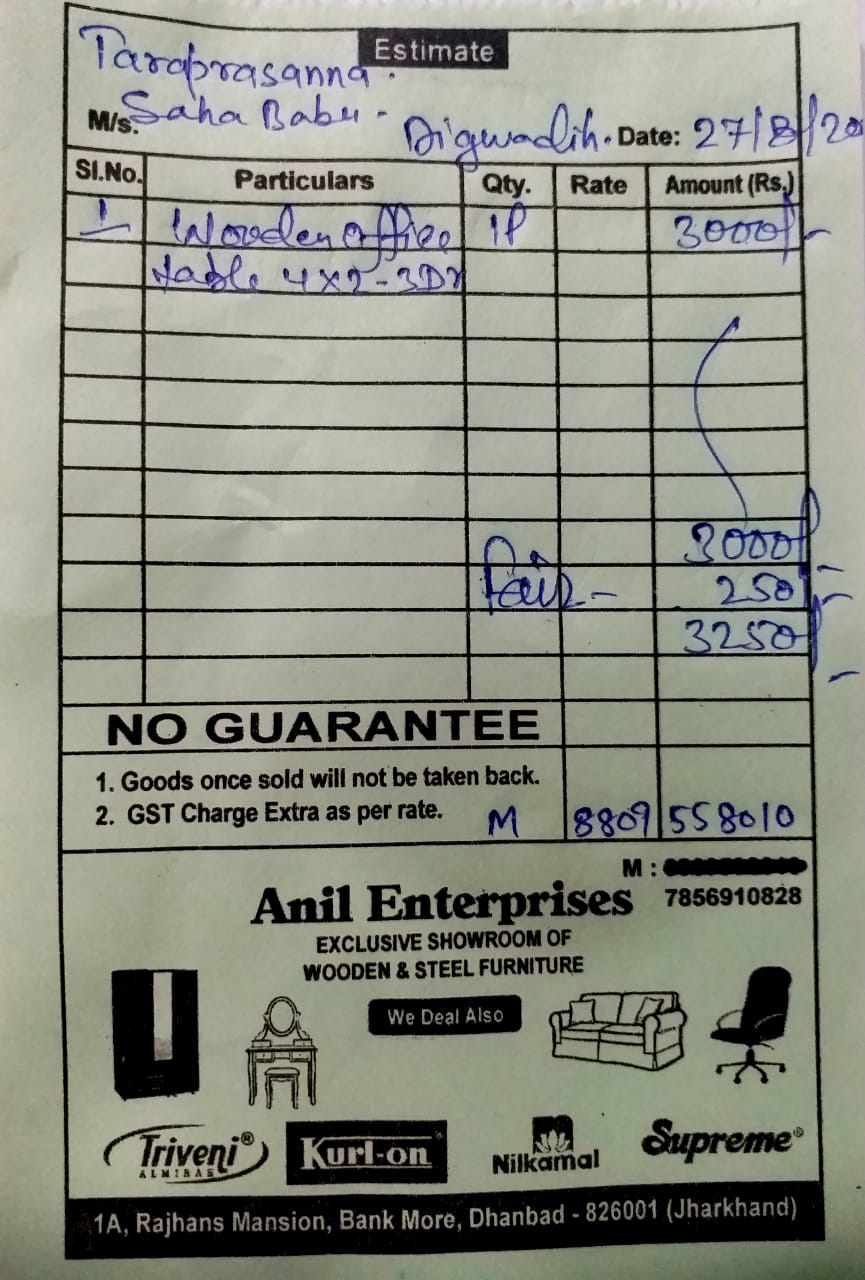 Estimate
Taraprasanna.
M/s. Saha Babu - Digwadih. Date: 27/8/20
Sl.No. Particulars Qty. Rate Amount (Rs.)
1 Wooden office 1P 3000/-
table 4x2-3Dr
3000/-
Fair - 250/-
3250/-
NO GUARANTEE
1. Goods once sold will not be taken back.
2. GST Charge Extra as per rate. M 8809 558010
M :
Anil Enterprises 7856910828
EXCLUSIVE SHOWROOM OF
WOODEN & STEEL FURNITURE
We Deal Also
Triveni® Kurl-on® Nilkamal Supreme®
ALMIRAH
1A, Rajhans Mansion, Bank More, Dhanbad - 826001 (Jharkhand)